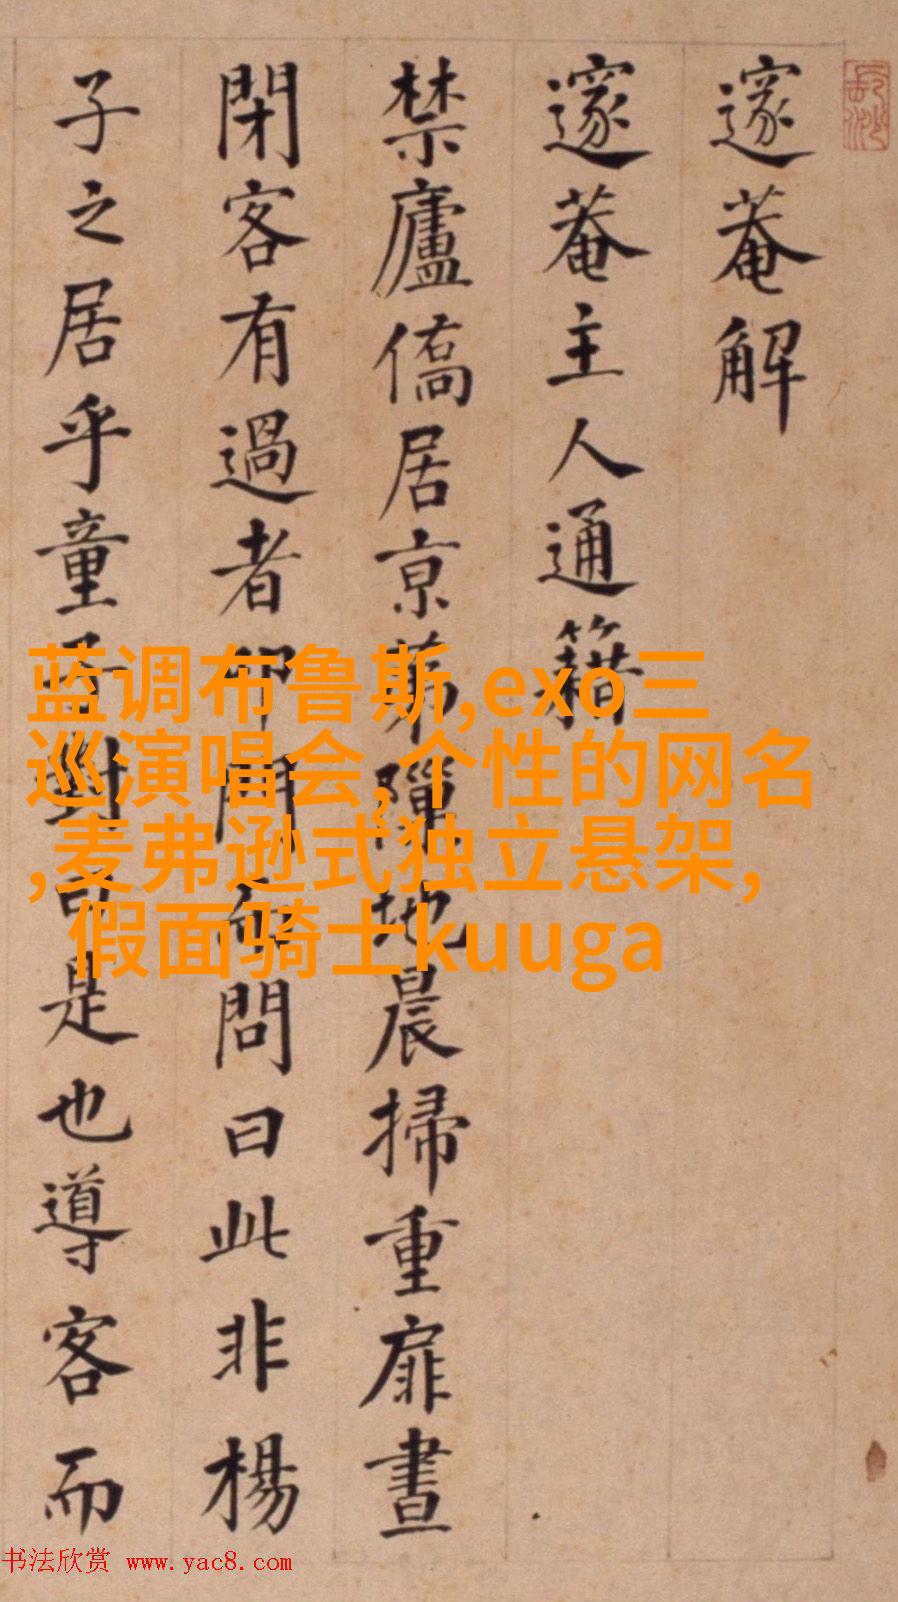 邃菴解
邃菴主人通籍
禁廬僑居京第隟地晨掃重扉晝
閉客有過者叩門而問曰此非楊
子之居乎童子對曰是也導客而
蓝调布鲁斯,exo三
巡演唱会,个性的网名
,麦弗逊式独立悬架,
假面骑士kuuga
书法欣赏 www.yac8.com